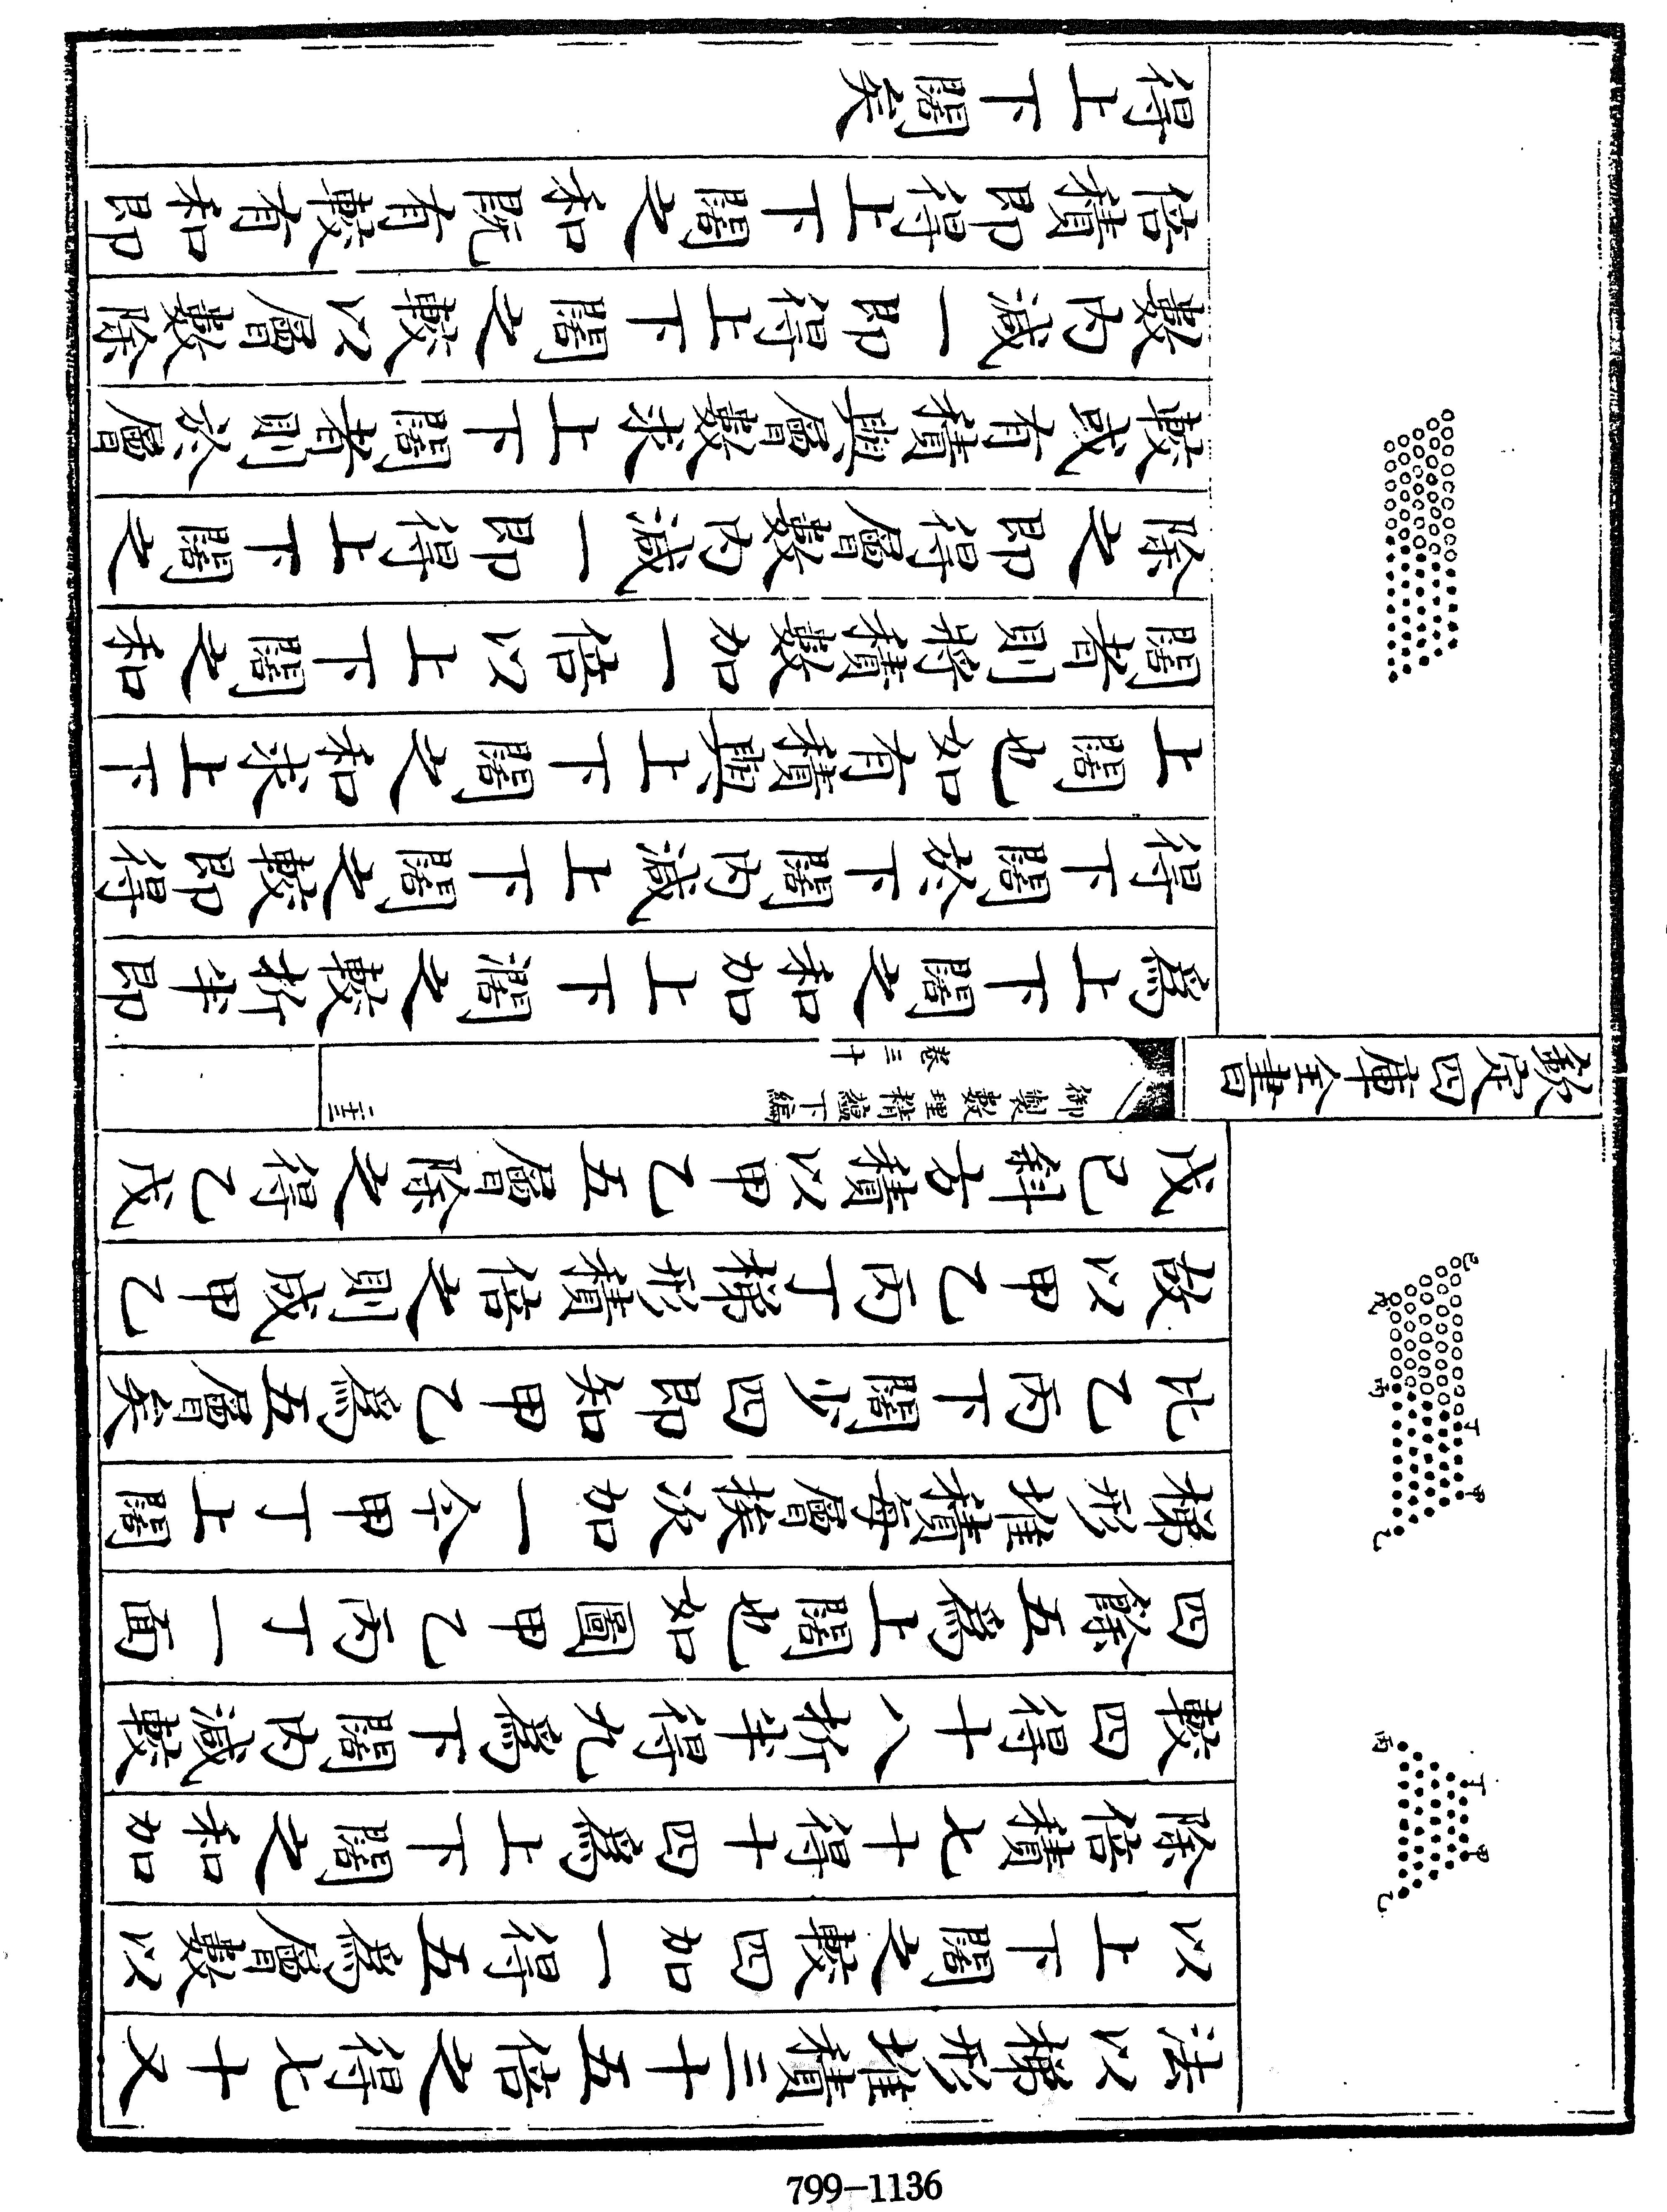 丙
丁
甲
乙
己
戊
丙
丁
甲
乙
法以梯形堆積三十五倍之得七十又
以上下闊之較四加一得五爲層數以
除倍積七十得十四爲上下闊之和加
較四得十八折半得九爲下闊内減較
四餘五爲上闊也如圖甲乙丙丁一面
梯形堆積每層挨次加一今甲丁上闊
比乙丙下闊少四即知甲乙爲五層矣
故以甲乙丙丁梯形積倍之則成甲乙
戊己斜方積以甲乙五層除之得乙戊
欽定四庫全書
御製數理精蘊下編
卷三十
二十三
爲上下闊之和加上下濶之較折半即
得下闊於下闊内減上下闊之較即得
上闊也如有積與上下闊之和求上下
闊者則將積數加一倍以上下闊之和
除之即得層數内減一即得上下闊之
較或有積與層數求上下闊者則於層
數内減一即得上下闊之較以層數除
倍積即得上下闊之和既有較有和即
得上下闊矣
799-1136